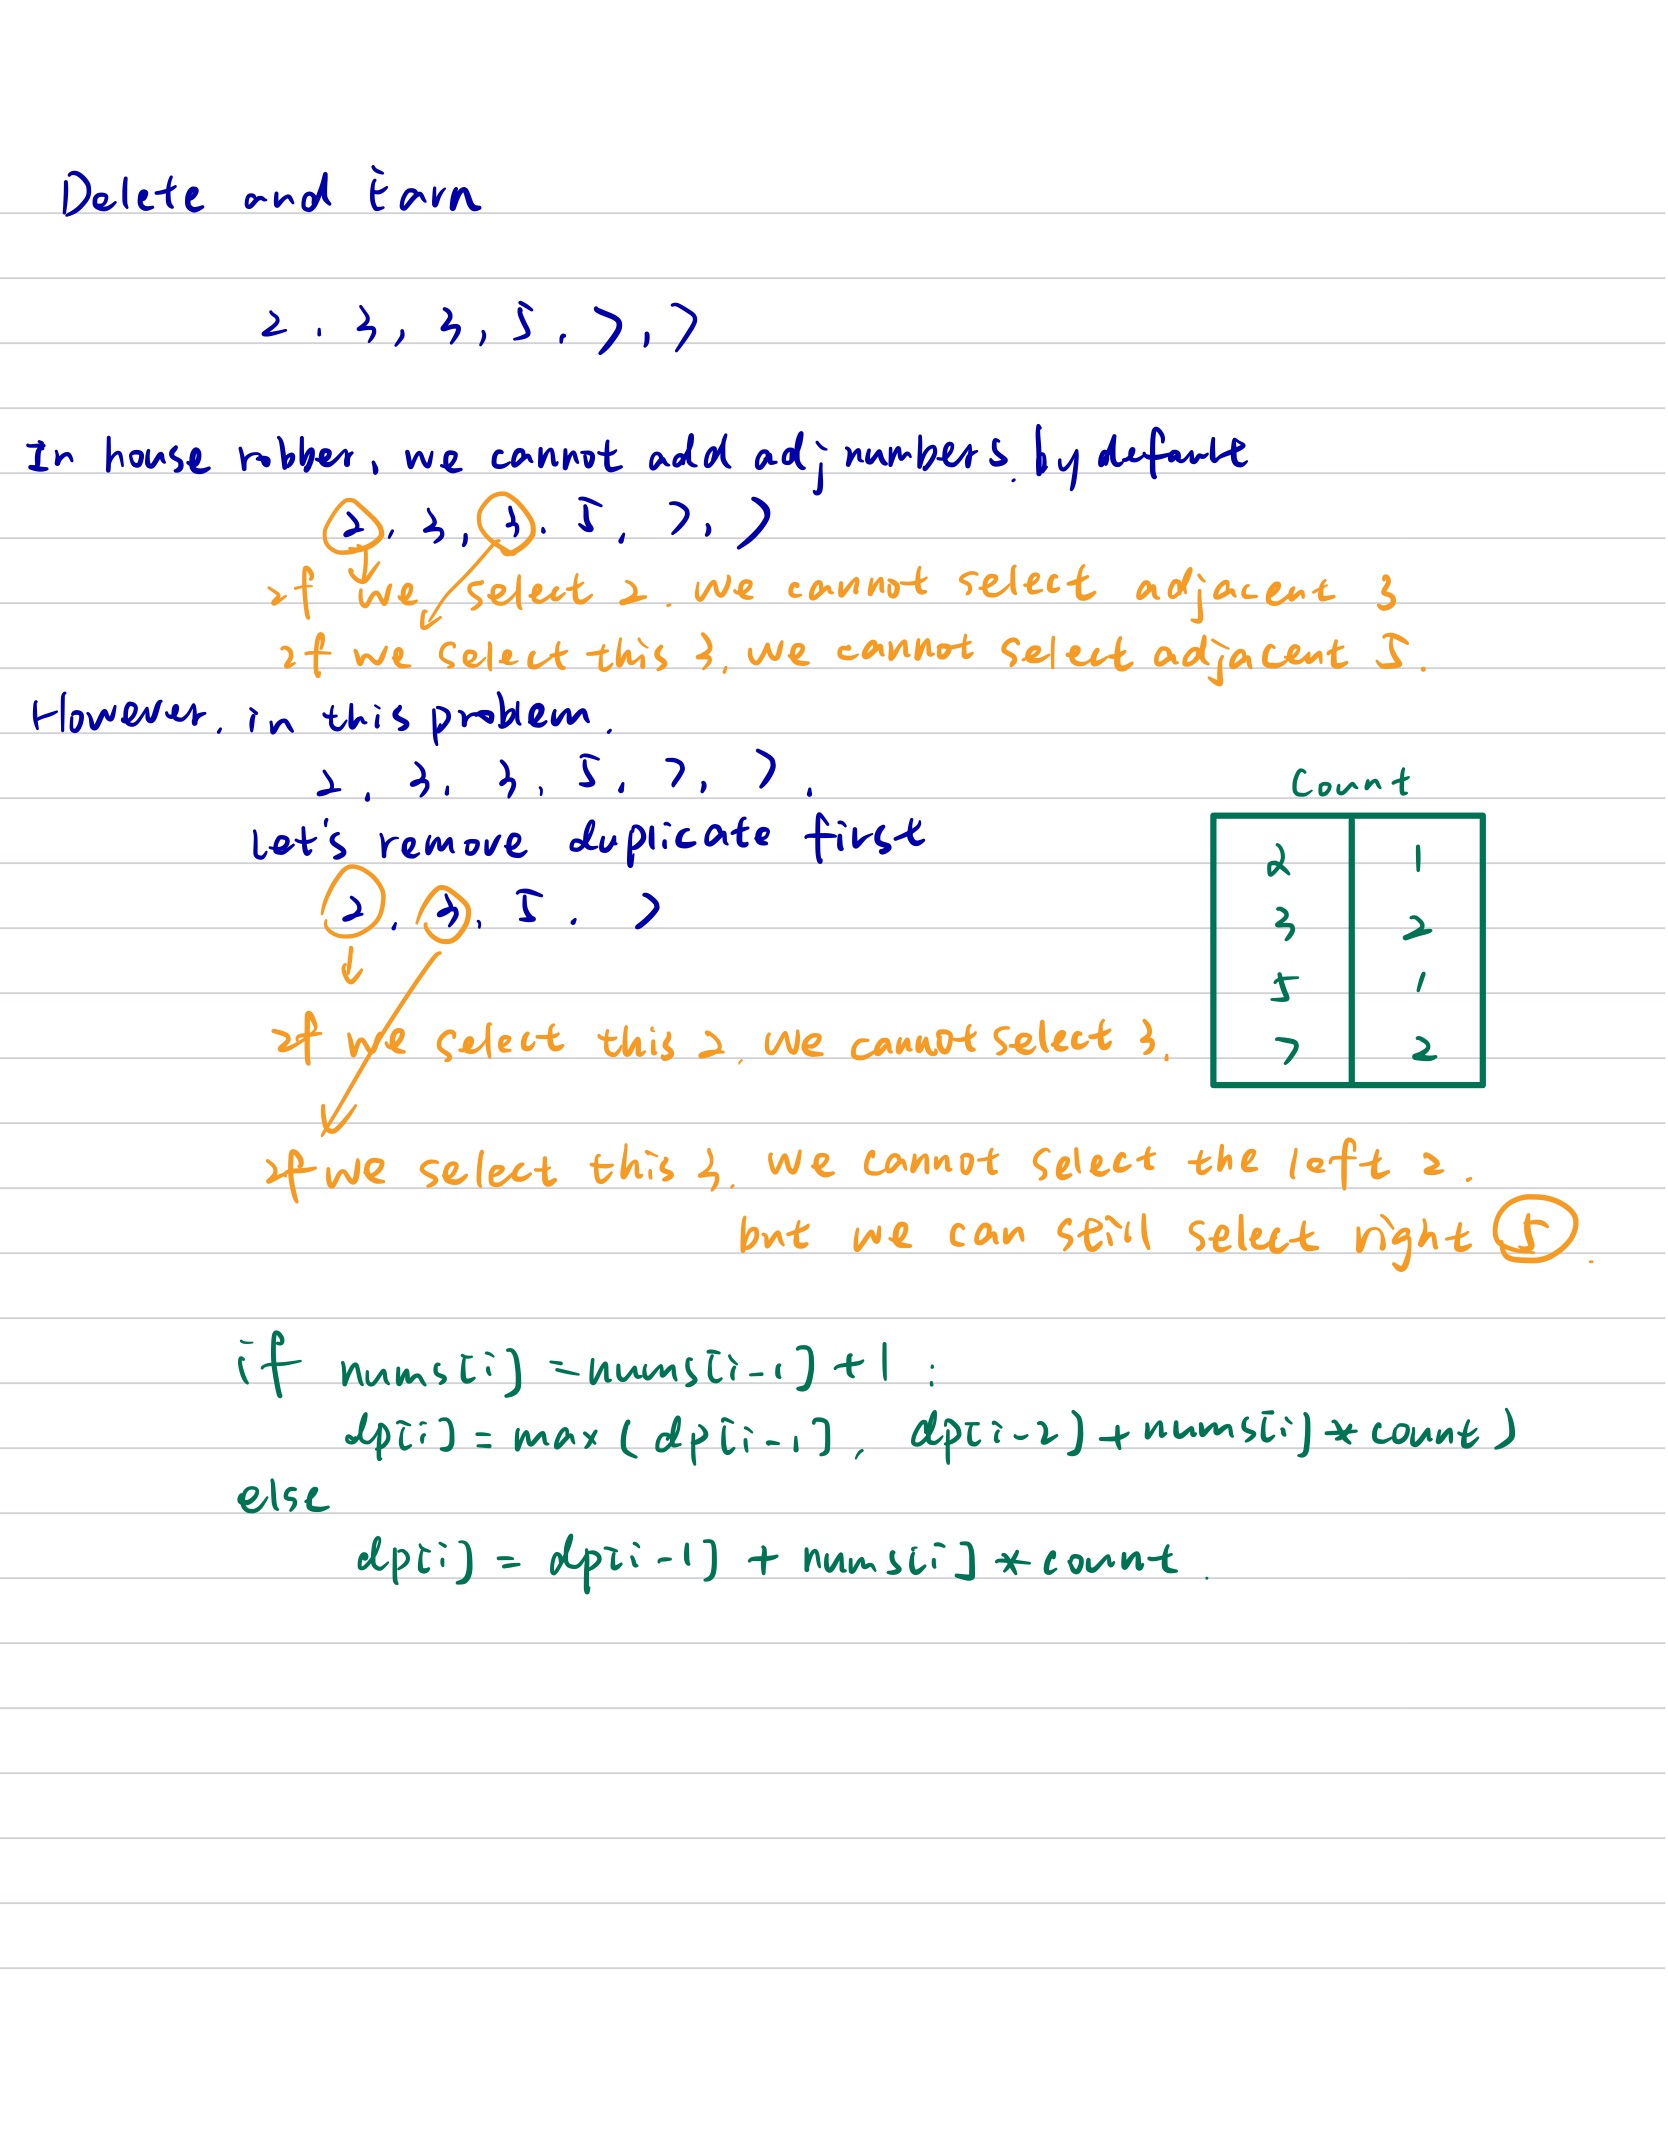 Delete and Earn
2, 3, 3, 5, 7, 7
In house robber, we cannot add adj numbers. by default
2, 3, 3, 5, 7, 7
If we select 2, we cannot select adjacent 3
If we select this 3, we cannot select adjacent 5.
However, in this problem.
2, 3, 3, 5, 7, 7.
Let's remove duplicate first
2, 3, 5, 7
Count
2 1
3 2
5 1
7 2
If we select this 2, we cannot select 3.
If we select this 3, we cannot select the left 2.
but we can still select right 5.
if nums[i] = nums[i-1] + 1 :
dp[i] = max ( dp[i-1], dp[i-2] + nums[i] * count )
else
dp[i] = dp[i-1] + nums[i] * count.